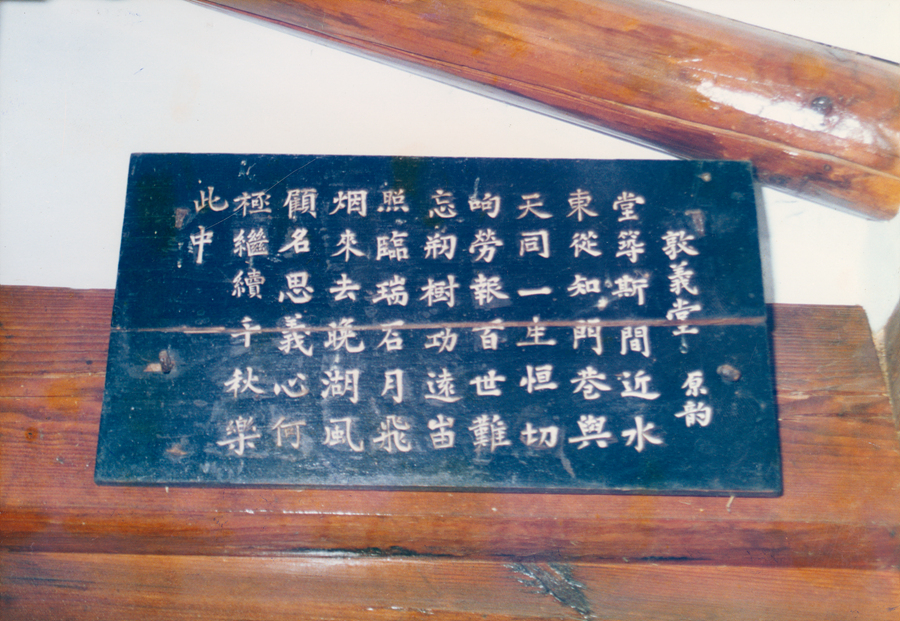 敦義堂 原韵
堂築斯間近水
東從知門巷與
天同一生恒切
呴勞報百世難
忘刱樹功遠峀
照臨瑞石月飛
烟來去晩湖風
顧名思義心何
極繼續千秋樂
此中